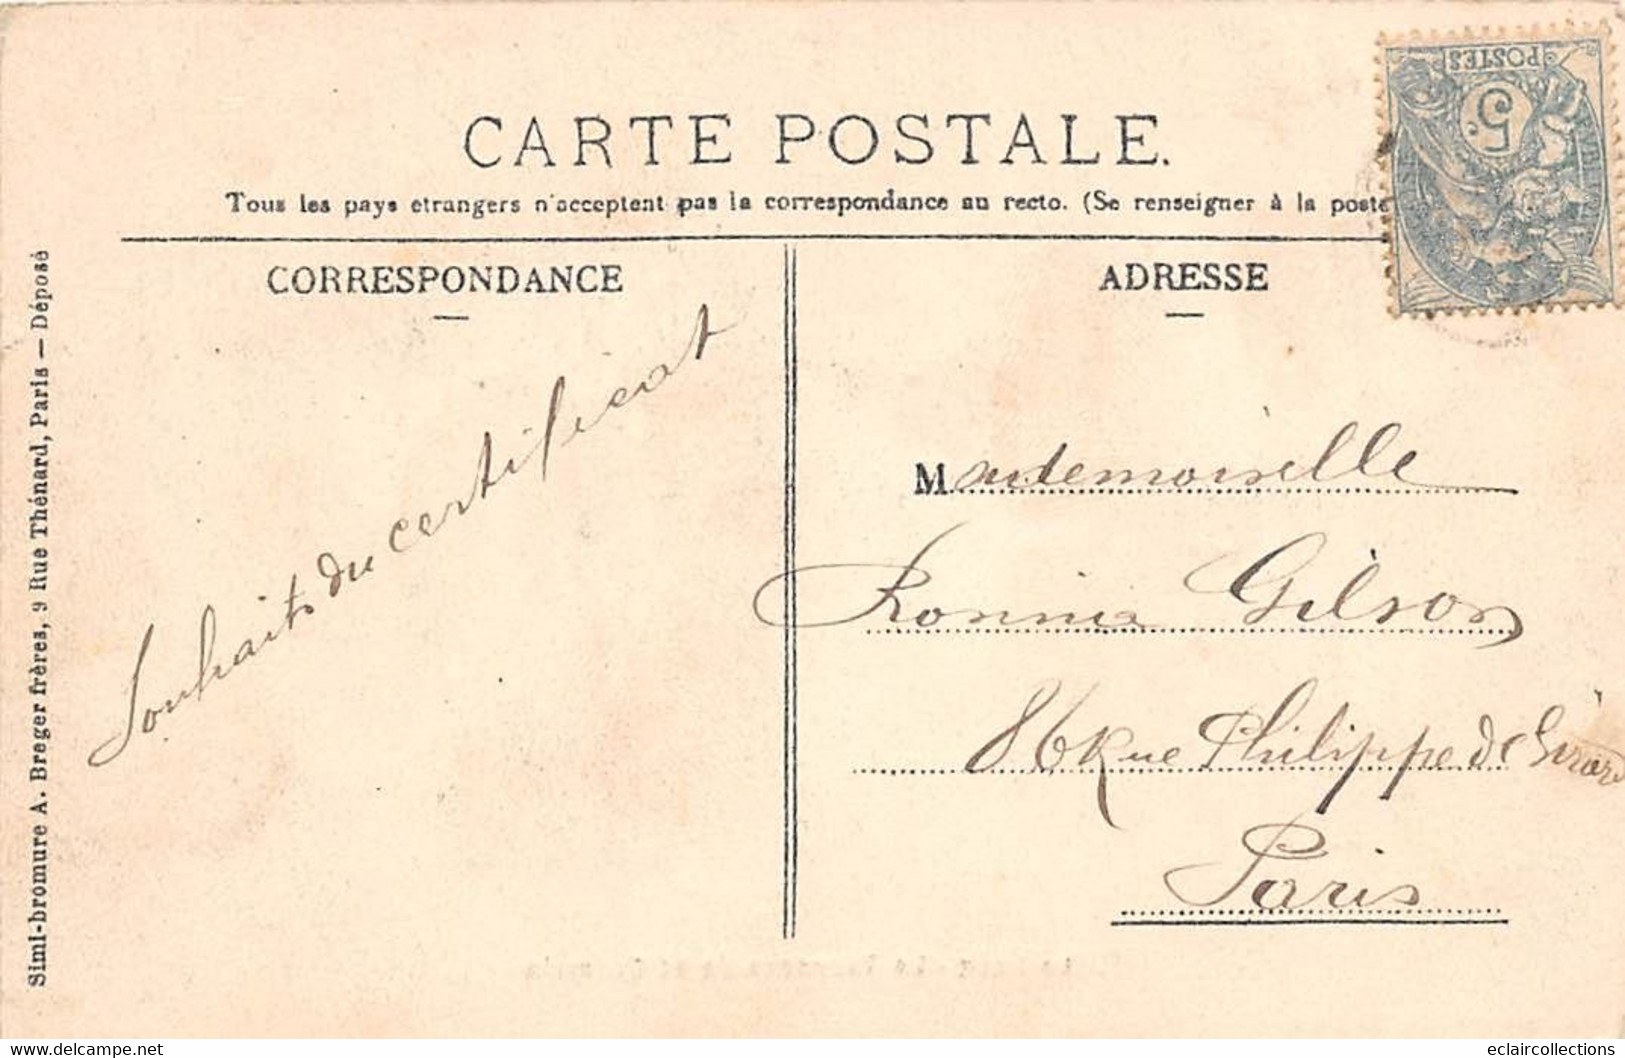 CARTE POSTALE.
Tous les pays etrangers n'acceptent pas la correspondance au recto. (Se renseigner à la poste
CORRESPONDANCE
ADRESSE
POSTES
5c
Souhaits du certificat
Mademoiselle
Gilson
86 Rue Philippe de Girard
Paris
Simi-bromure A. Breger frères, 9 Rue Thénard, Paris — Déposé
eclaircollections
https://www.delcampe.net